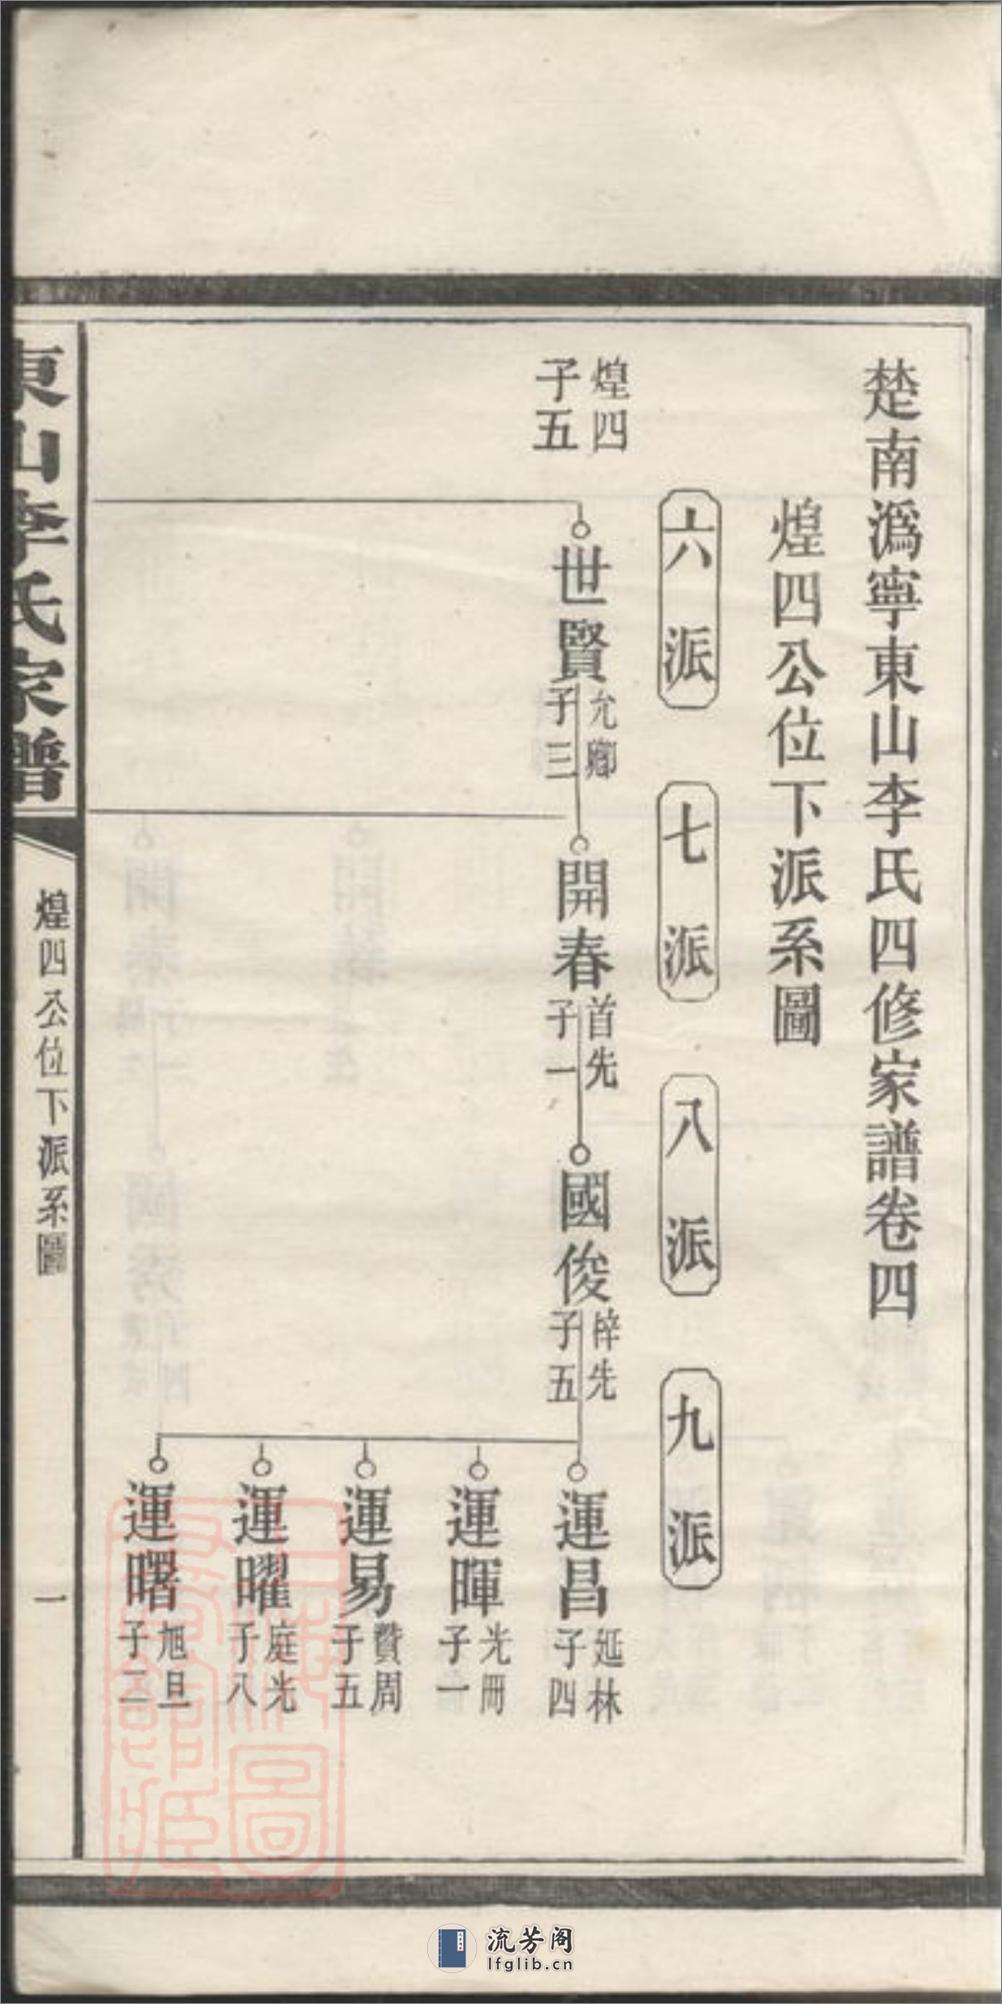 楚南溈寧東山李氏四修家譜卷四
煌四公位下派系圖
六派
七派
八派
九派
煌四
子五
世賢
允卿
子三
開春
首先
子一
國俊
梓先
子五
運昌
延林
子四
運暉
光冊
子一
運易
贊周
子五
運曜
庭光
子八
運曙
旭旦
子二
東山李氏家譜
煌四公位下派系圖
一
流芳阁
lfglib.cn